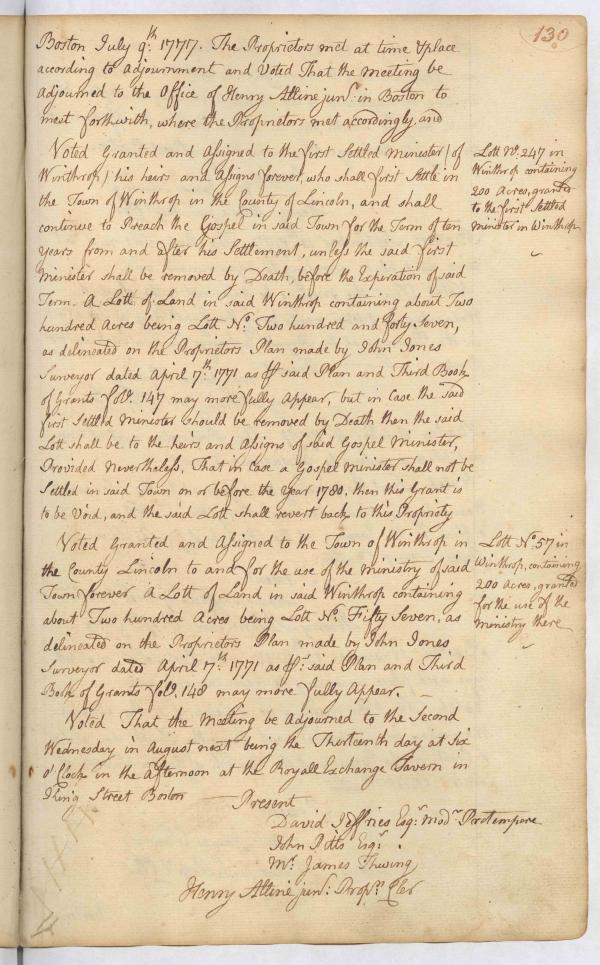 130
Boston July 9th. 1777. The Proprietors met at time & place
according to adjournment and Voted That the meeting be
adjourned to the Office of Henry Alline junr. in Boston to
meet forthwith, where the Proprietors met accordingly, and
Voted Granted and Assigned to the first Settled Minister (of
Winthrop) his heirs and Asigns forever, who shall first Settle in
the Town of Winthrop in the County of Lincoln, and shall
continue to Preach the Gospel in said Town for the Term of ten
years from and after his Settlement, unless the said first
Minister shall be removed by Death, before the Expiration of said
Term. A Lott of Land in said Winthrop containing about Two
hundred Acres being Lott No. Two hundred and forty Seven,
as delineated on the Proprietors Plan made by John Jones
Surveyor dated April 7th. 1771 as pr said Plan and Third Book
of Grants folo. 147 may more fully Appear, but in Case the said
first Settled Minister should be removed by Death then the said
Lott shall be to the heirs and Asigns of said Gospel Minister,
Provided Nevertheless, That in Case a Gospel Minister shall not be
Settled in said Town on or before the Year 1780. then this Grant is
to be Void, and the said Lott shall revert back to this Propriety
Lott No. 247 in
Winthrop containing
200 Acres, granted
to the first Settled
minister in Winthrop
Voted Granted and Assigned to the Town of Winthrop in
the County Lincoln to and for the use of the Ministry of said
Town forever A Lott of Land in said Winthrop containing
about Two hundred Acres being Lott No. Fifty Seven, as
delineated on the Proprietors Plan made by John Jones
Surveyor dated April 7th. 1771 as pr. said Plan and Third
Book of Grants folo. 148 may more fully Appear.
Lott No. 57 in
Winthrop, containing
200 Acres, granted
for the use of the
ministry there
Voted That the Meeting be Adjourned to the Second
Wednesday in August next being the Thirteenth day at Six
o'Clock in the Afternoon at the Royall Exchange Tavern in
King Street Boston
Present
David Jeffries Esqr. Modr. Protempore
John Pitts Esqr.
Mr. James Thwing
Henry Alline junr. Proprs Cler